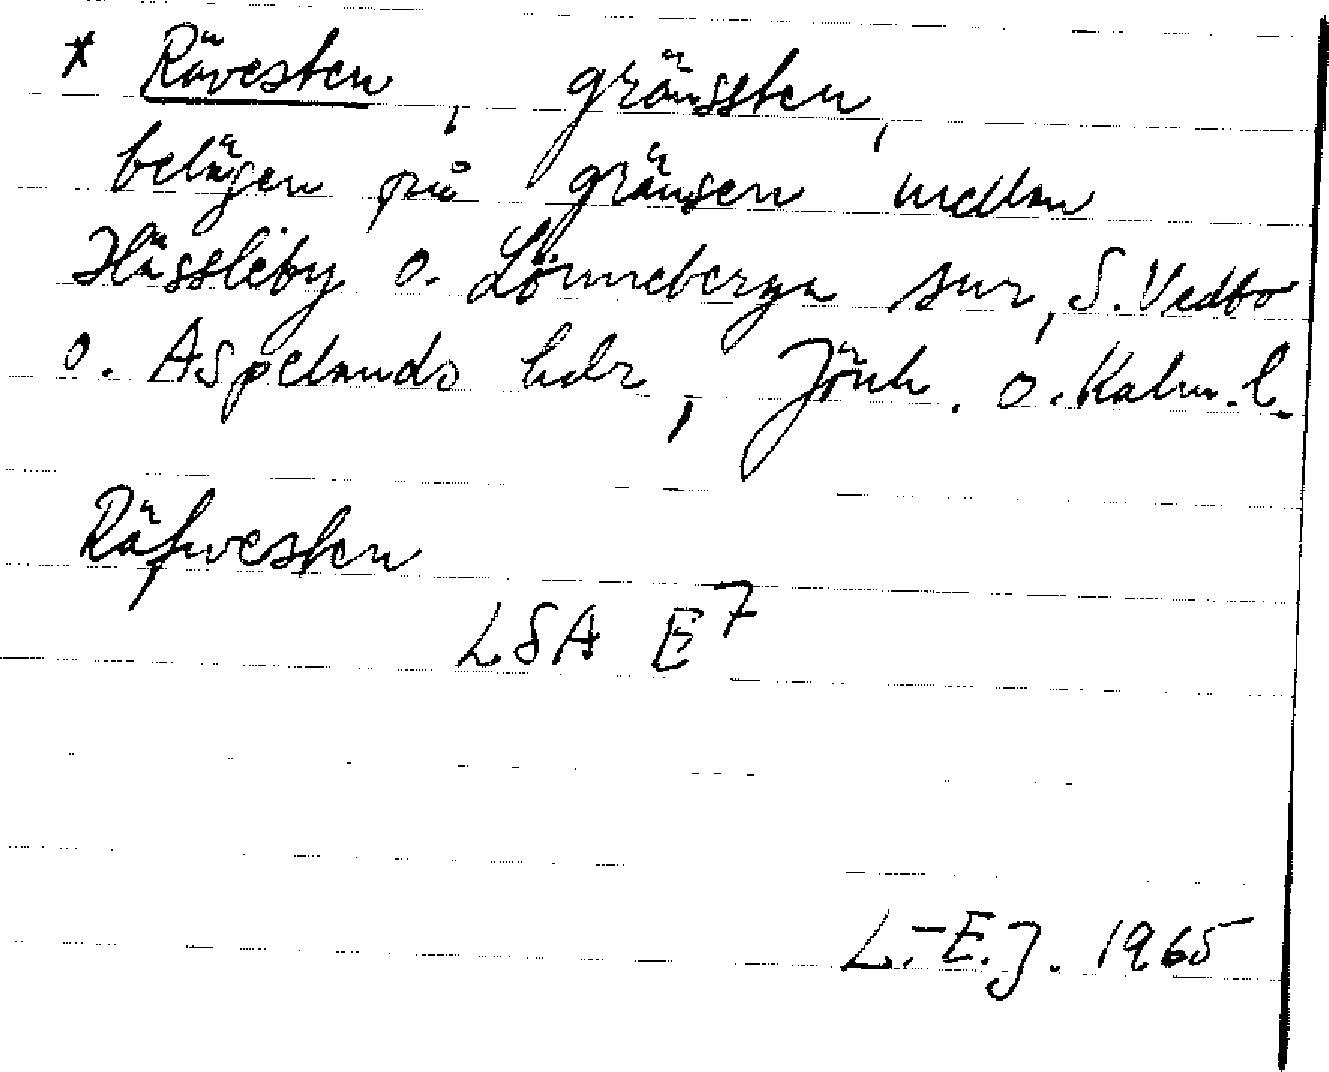 * Rävesten, gränssten,
belägen på gränsen mellan
Hässleby o. Lönneberga snr, S. Vedbo
o. Aspelands hdr, Jönk. o. Kalm. l.
Räfwesten
LSA E7
L.-E.J. 1965